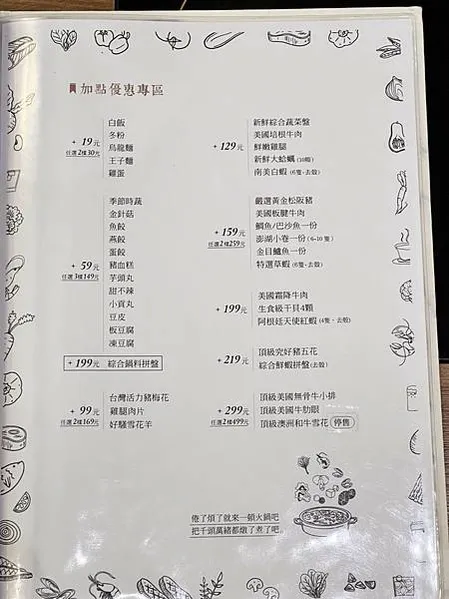 加點優惠專區
+ 19元
任選2樣30元
白飯
冬粉
烏龍麵
王子麵
雞蛋
+ 59元
任選3樣149元
季節時蔬
金針菇
魚餃
燕餃
蛋餃
豬血糕
芋頭丸
甜不辣
小貢丸
豆皮
板豆腐
凍豆腐
+ 199元 綜合鍋料拼盤
+ 99元
任選2樣169元
台灣活力豬梅花
雞腿肉片
好騷雪花羊
+ 129元
新鮮綜合蔬菜盤
美國培根牛肉
鮮嫩雞腿
新鮮大蛤蠣 (10顆)
南美白蝦 (6隻·去殼)
+ 159元
任選2樣259元
嚴選黃金松阪豬
美國板腱牛肉
鯛魚/巴沙魚一份
澎湖小卷一份 (6-10隻)
金目鱸魚一份
特選草蝦 (6隻·去殼)
+ 199元
美國霜降牛肉
生食級干貝4顆
阿根廷天使紅蝦 (4隻·去殼)
+ 219元
頂級究好豬五花
綜合鮮蝦拼盤 (去殼)
+ 299元
任選2樣499元
頂級美國無骨牛小排
頂級美國牛肋眼
頂級澳洲和牛雪花 停售
倦了煩了就來一頓火鍋吧
把千頭萬緒都燉了煮了吧。